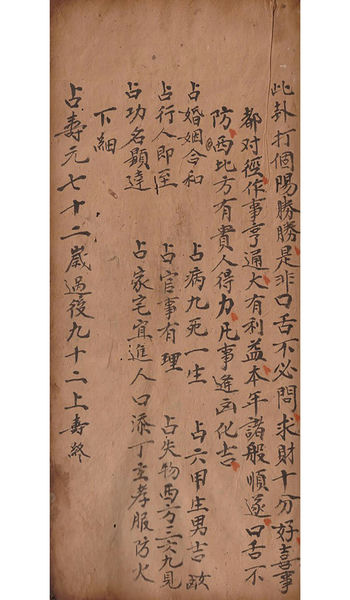 此卦打個陽勝勝是非口舌不必問求財十分好喜事
都对徑作事亨通大有利益本年諸般順遂口舌不
防西北方有貴人得力凡事逢凶化吉
占婚姻合和 占病九死一生 占六甲生男吉
占行人即至 占官事有理 占失物西方三六九見
占功名顯達 占家宅宜進人口添丁主孝服防火
下細
占壽元七十二歲過後九十二上壽終